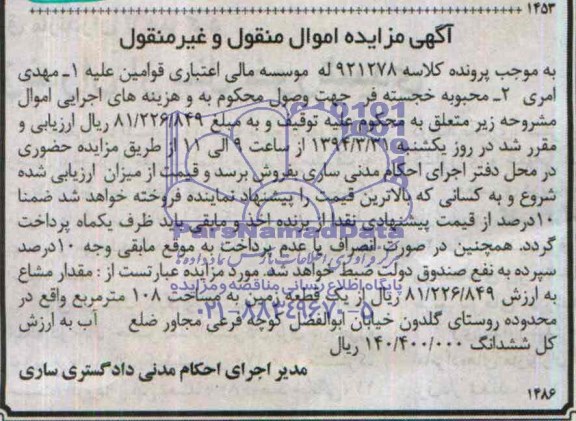 ۱۴۵۳
آگهی مزایده اموال منقول و غیرمنقول
به موجب پرونده کلاسه ۹۲۱۲۷۸ له موسسه مالی اعتباری قوامین علیه ۱ـ مهدی
امری ۲ـ محبوبه خجسته فر جهت وصول محکوم به و هزینه های اجرایی اموال
مشروحه زیر متعلق به محکوم علیه توقیف و به مبلغ ۸۱/۲۲۶/۸۴۹ ریال ارزیابی و
مقرر شد در روز یکشنبه ۱۳۹۴/۳/۳۱ از ساعت ۹ الی ۱۱ از طریق مزایده حضوری
در محل دفتر اجرای احکام مدنی ساری بفروش برسد و قیمت از میزان ارزیابی شده
شروع و به کسانی که بالاترین قیمت را پیشنهاد نماینده فروخته خواهد شد ضمنا
۱۰درصد از قیمت پیشنهادی نقدا از برنده اخذ و مابقی باید ظرف یکماه پرداخت
گردد. همچنین در صورت انصراف یا عدم پرداخت به موقع مابقی وجه ۱۰درصد
سپرده به نفع صندوق دولت ضبط خواهد شد. مورد مزایده عبارتست از : مقدار مشاع
به ارزش ۸۱/۲۲۶/۸۴۹ ریال از یک قطعه زمین به مساحت ۱۰۸ مترمربع واقع در
محدوده روستای گلدون خیابان ابوالفضل کوچه فرعی مجاور ضلع آب به ارزش
کل ششدانگ ۱۴۰/۴۰۰/۰۰۰ ریال
مدیر اجرای احکام مدنی دادگستری ساری
۱۴۸۶
ParsNamadData
پایگاه اطلاع رسانی مناقصه و مزایده
۰۲۱-۸۸۳۴۹۶۷۰-۵